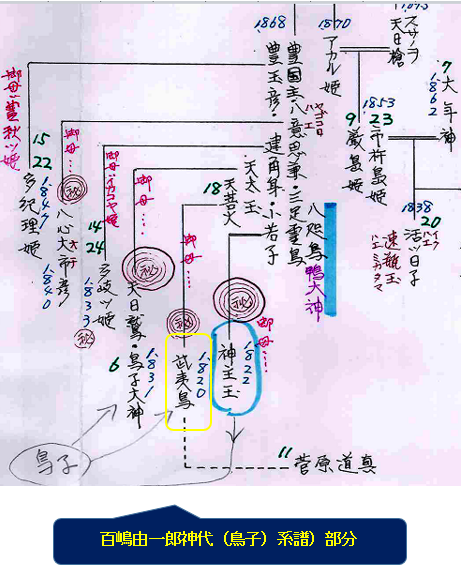 1893
スサノヲ
天日槍
1870
アカル姫
7
1862
大年神
1868
豊國主・八意思兼・三足霊烏
ヤゴコロ
ハエ
豊玉彦・建角身・小若子
天太玉
18 天芸火
八咫烏
鴨大神
1853
23
市杵島姫
9
厳島姫
1838
20
活ツ日子
速瓶玉
ハエミカタマ
御母・豊秋ツ姫
15
22
多紀理姫
1847
秘
八心大市彦
1840
御母…
御母・イカコヤ姫
14
24
多岐ツ姫
1833
秘
御母…
秘
天日鷲・鳥子大神
6
1831
御母…
秘
武夷鳥
1820
秘
神玉玉
1822
御母…
鳥子
11
菅原道真
百嶋由一郎神代(鳥子)系譜)部分